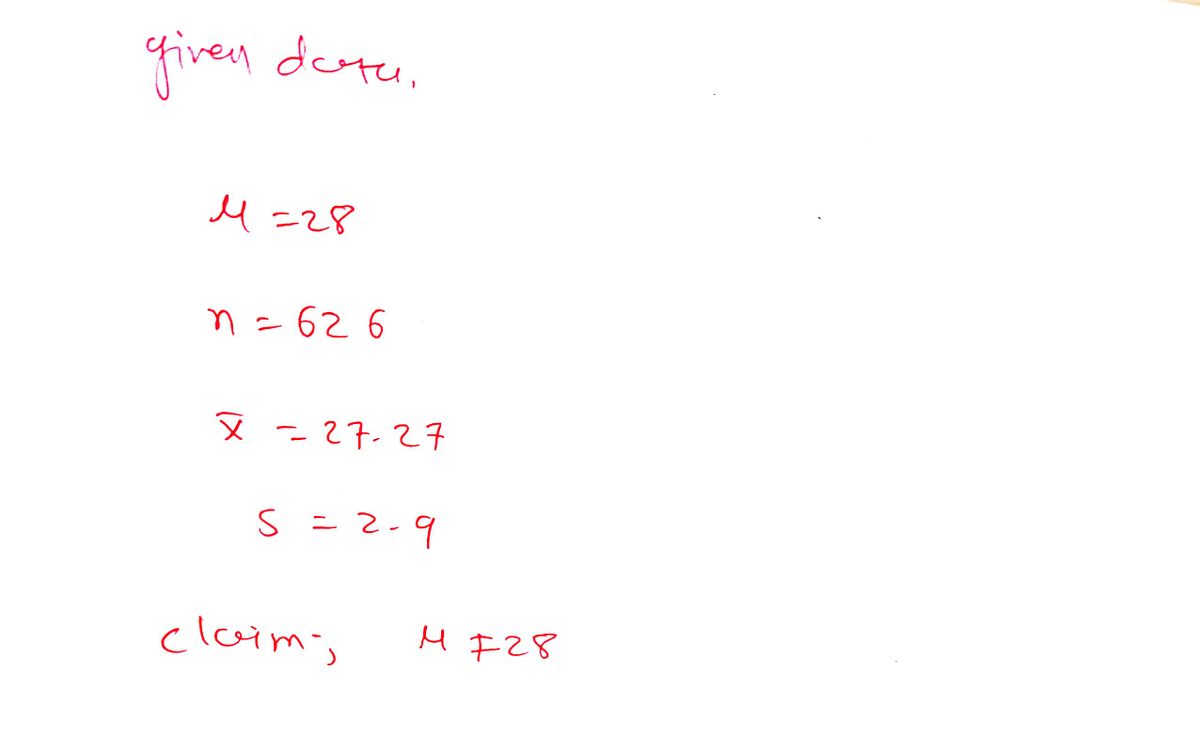 given data.
μ = 28
n = 626
x̄ = 27.27
S = 2.9
claim:, μ ≠ 28